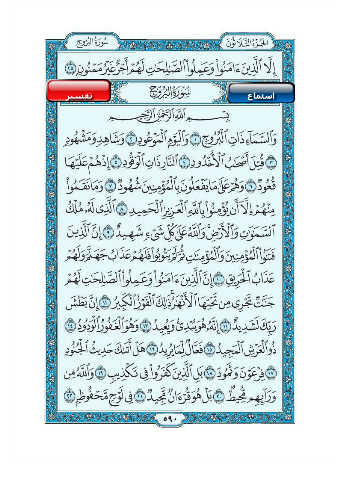 سُورَةُ البُرُوجِ الجُزْءُ الثَّلَاثُونَ
إِلَّا ٱلَّذِينَ ءَامَنُوا۟ وَعَمِلُوا۟ ٱلصَّٰلِحَٰتِ لَهُمْ أَجْرٌ غَيْرُ مَمْنُونٍۭ ٢٥
استماع سُورَةُ البُرُوجِ تفسير
بِسْمِ ٱللَّهِ ٱلرَّحْمَٰنِ ٱلرَّحِيمِ
وَٱلسَّمَآءِ ذَاتِ ٱلْبُرُوجِ ١ وَٱلْيَوْمِ ٱلْمَوْعُودِ ٢ وَشَاهِدٍ وَمَشْهُودٍ
٣ قُتِلَ أَصْحَٰبُ ٱلْأُخْدُودِ ٤ ٱلنَّارِ ذَاتِ ٱلْوَقُودِ ٥ إِذْ هُمْ عَلَيْهَا
قُعُودٌ ٦ وَهُمْ عَلَىٰ مَا يَفْعَلُونَ بِٱلْمُؤْمِنِينَ شُهُودٌ ٧ وَمَا نَقَمُوا۟
مِنْهُمْ إِلَّآ أَن يُؤْمِنُوا۟ بِٱللَّهِ ٱلْعَزِيزِ ٱلْحَمِيدِ ٨ ٱلَّذِى لَهُۥ مُلْكُ
ٱلسَّمَٰوَٰتِ وَٱلْأَرْضِ وَٱللَّهُ عَلَىٰ كُلِّ شَىْءٍ شَهِيدٌ ٩ إِنَّ ٱلَّذِينَ
فَتَنُوا۟ ٱلْمُؤْمِنِينَ وَٱلْمُؤْمِنَٰتِ ثُمَّ لَمْ يَتُوبُوا۟ فَلَهُمْ عَذَابُ جَهَنَّمَ وَلَهُمْ
عَذَابُ ٱلْحَرِيقِ ١٠ إِنَّ ٱلَّذِينَ ءَامَنُوا۟ وَعَمِلُوا۟ ٱلصَّٰلِحَٰتِ لَهُمْ
جَنَّٰتٌ تَجْرِى مِن تَحْتِهَا ٱلْأَنْهَٰرُ ذَٰلِكَ ٱلْفَوْزُ ٱلْكَبِيرُ ١١ إِنَّ بَطْشَ
رَبِّكَ لَشَدِيدٌ ١٢ إِنَّهُۥ هُوَ يُبْدِئُ وَيُعِيدُ ١٣ وَهُوَ ٱلْغَفُورُ ٱلْوَدُودُ ١٤
ذُو ٱلْعَرْشِ ٱلْمَجِيدُ ١٥ فَعَّالٌ لِّمَا يُرِيدُ ١٦ هَلْ أَتَىٰكَ حَدِيثُ ٱلْجُنُودِ
١٧ فِرْعَوْنَ وَثَمُودَ ١٨ بَلِ ٱلَّذِينَ كَفَرُوا۟ فِى تَكْذِيبٍ ١٩ وَٱللَّهُ مِن
وَرَآئِهِم مُّحِيطٌۢ ٢٠ بَلْ هُوَ قُرْءَانٌ مَّجِيدٌ ٢١ فِى لَوْحٍ مَّحْفُوظٍۭ ٢٢
٥٩٠